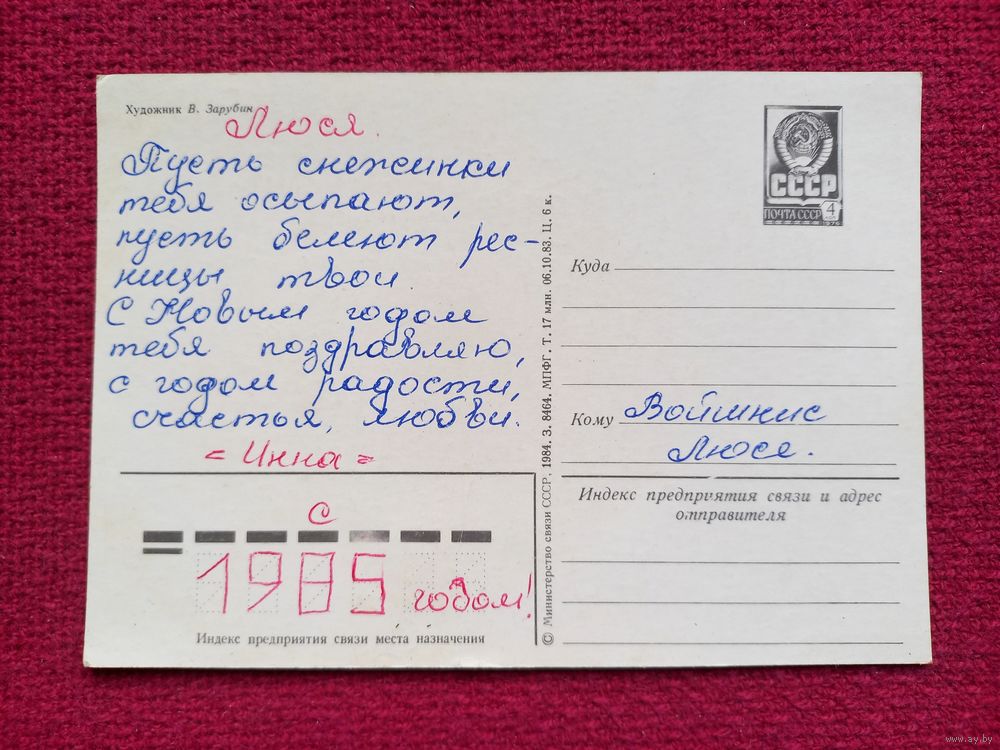 Художник В. Зарубин
Люся.
Пусть снежинки
тебя осыпают,
пусть белеют рес-
ницы твои.
С Новым годом
тебя поздравляю,
с годом радости,
счастья, любви.
= Инна =
С
1985 годом!
Индекс предприятия связи места назначения
© Министерство связи СССР, 1984. З. 8464. МПФГ. Т. 17 млн. 06.10.83. Ц. 6 к.
СССР
ПОЧТА СССР 4
1976
Куда
Кому Войшнис
Люсе.
Индекс предприятия связи и адрес
отправителя
www.ay.by